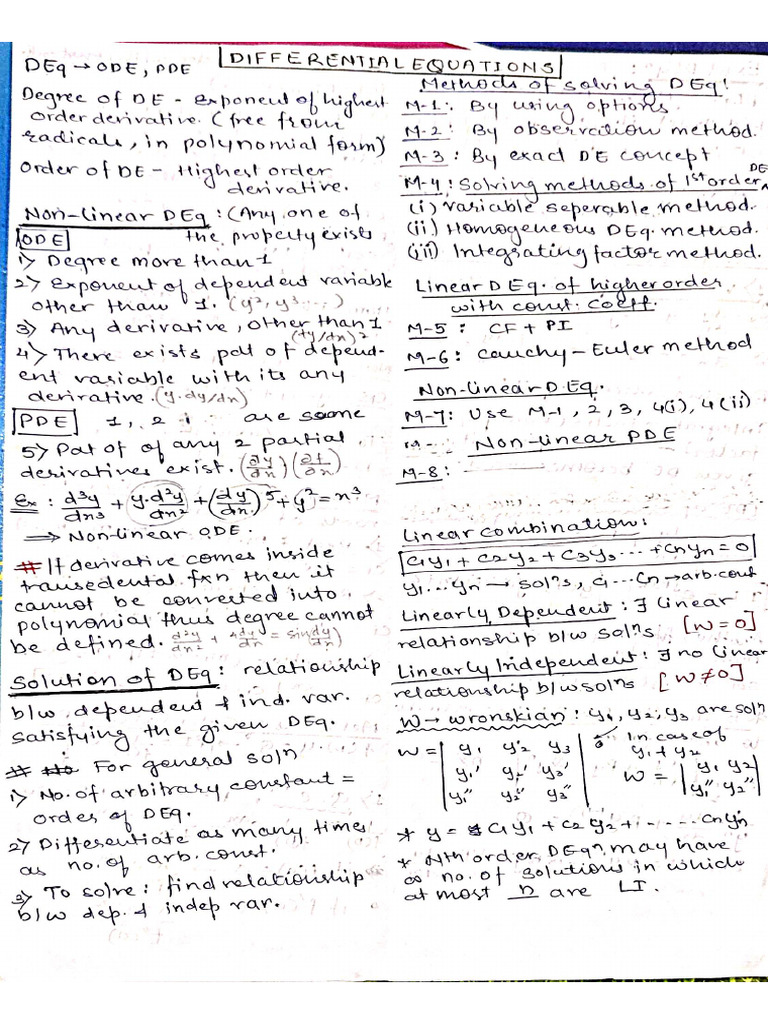 DIFFERENTIAL EQUATIONS
DEq → ODE, PDE
Degree of DE - Exponent of highest
order derivative. (free from
radicals, in polynomial form)
Order of DE - Highest order
derivative.
Non-linear DEq : (Any one of
the property exists
ODE
1) Degree more than 1
2) Exponent of dependent variable
other than 1. (y², y³....)
3) Any derivative, other than 1
(dy/dx)²
4) There exists pdt of depend-
ent variable with its any
derivative. (y.dy/dx)
PDE 1, 2 : are same
5) Pdt of of any 2 partial
derivatives exist. (∂y/∂x)(∂t/∂x)
Ex : d³y/dx³ + y.d²y/dx² + (dy/dx)⁵ + y² = x³
⟹ Non-linear ODE.
# If derivative comes inside
transedental fxn then it
cannot be converted into
polynomial thus degree cannot
be defined.
Solution of DEq : relationship
b/w dependent & ind. var.
satisfying the given DEq.
# For general solⁿ
1) No. of arbitrary constant =
order of DEq.
2) Differentiate as many times
as no. of arb. const.
3) To solve : find relationship
b/w dep. & indep var.
Methods of solving DEq!
M-1 : By using options
M-2 : By observation method.
M-3 : By exact DE concept
M-4 : Solving methods of 1st order DE
(i) variable seperable method.
(ii) Homogeneous DEq. method.
(iii) Integrating factor method.
Linear DEq. of higher order
with const. coeff.
M-5 : CF + PI
M-6 : Cauchy-Euler method
Non-linear DEq.
M-7 : Use M-1, 2, 3, 4(i), 4(ii)
Non-linear PDE
M-8 :
Linear Combination :
C1y1 + C2y2 + C3y3... + Cnyn = 0
y1...yn → solⁿs, C1...Cn → arb. const
Linearly Dependent : ∃ linear
relationship b/w solⁿs [W=0]
Linearly Independent : ∃ no linear
relationship b/w solⁿs [W≠0]
W → wronskian : y1, y2, y3 are solⁿ
W = | y1 y2 y3 | In case of
| y1' y2' y3' | y1 + y2
| y1'' y2'' y3'' | W = | y1 y2 |
| y1'' y2'' |
* y = C1y1 + C2y2 + ..... Cnyn
* Nth order DEqⁿ may have
∞ no. of solutions in which
at most n are LI.